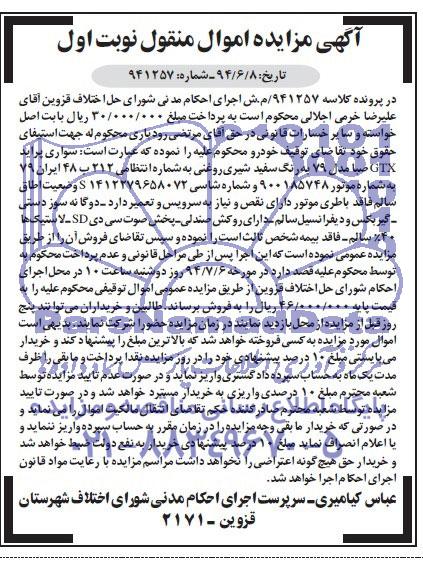 آگهی مزایده اموال منقول نوبت اول
تاریخ: ۹۴/۶/۸ ــ شماره: ۹۴۱۲۵۷
در پرونده کلاسه ۹۴۱۲۵۷/م.ش اجرای احکام مدنی شورای حل اختلاف قزوین آقای
علیرضا خرمی اجلالی محکوم است به پرداخت مبلغ ۳۰/۰۰۰/۰۰۰ ریال بابت اصل
خواسته و سایر خسارات قانونی در حق آقای مرتضی رودباری محکوم له جهت استیفای
حقوق خود تقاضای توقیف خودرو محکوم علیه را نموده که عبارت است: سواری پراید
GTX صبا مدل ۷۹ به رنگ سفید شیری روغنی به شماره انتظامی ۲۱۲ ب ۴۸ ایران ۷۹
به شماره موتور ۹۰۰۱۸۵۷۴۸ و شماره شاسی S ۱۴۱۲۲۷۹۶۵۸۰۷۲ وضعیت اطاق
سالم فاقد باطری موتور دارای نقص و نیاز به سرویس و تعمیر دارد ـ دوگانه سوز دستی
ـ گیربکس و دیفرانسیل سالم ـ دارای روکش صندلی ـ پخش صوت سی دی SD ـ لاستیک‌ها
۴۰٪ سالم ـ فاقد بیمه شخص ثالث است را نموده و سپس تقاضای فروش آن را از طریق
مزایده عمومی نموده است که این اجرا پس از طی مراحل قانونی و عدم پرداخت محکوم به
توسط محکوم علیه قصد دارد در مورخه ۹۴/۷/۶ روز دوشنبه ساعت ۱۰ در محل اجرای
احکام شورای حل اختلاف قزوین از طریق مزایده عمومی اموال توقیفی محکوم علیه را به
قیمت پایه ۴۶/۰۰۰/۰۰۰ ریال را به فروش برساند. طالبین و خریداران می‌توانند پنج
روز قبل از مزایده از محل بازدید نمایند در زمان مزایده حضورا شرکت نمایند. بدیهی است
اموال مورد مزایده به کسی فروخته خواهد شد که بالاترین مبلغ را پیشنهاد کند و خریدار
می‌بایستی مبلغ ۱۰ درصد پیشنهادی خود را در روز مزایده نقدا پرداخت و مابقی را ظرف
مدت یک ماه به حساب سپرده دادگستری واریز نماید و در صورت عدم تایید مزایده توسط
شعبه محترم مبلغ ۱۰ درصدی واریزی به خریدار مسترد خواهد شد و در صورت تایید
مزایده توسط شعبه محترم صادر کننده حکم تقاضای انتقال مالکیت اموال را می‌نماید و
در صورتی که خریدار مابقی وجه مزایده را در زمان مقرر به حساب سپرده واریز ننماید و
یا اعلام انصراف نماید مبلغ ۱۰ درصد پیشنهادی خریدار به نفع دولت ضبط خواهد شد
و خریدار حق هیچ گونه اعتراضی را نخواهد داشت مراسم مزایده با رعایت مواد قانون
اجرای احکام اجرا خواهد شد.
عباس کیامیری ــ سرپرست اجرای احکام مدنی شورای اختلاف شهرستان
قزوین ــ ۲۱۷۱
ParsNamadData
۰۲۱-۸۸۳۴۹۶۷۰-۵